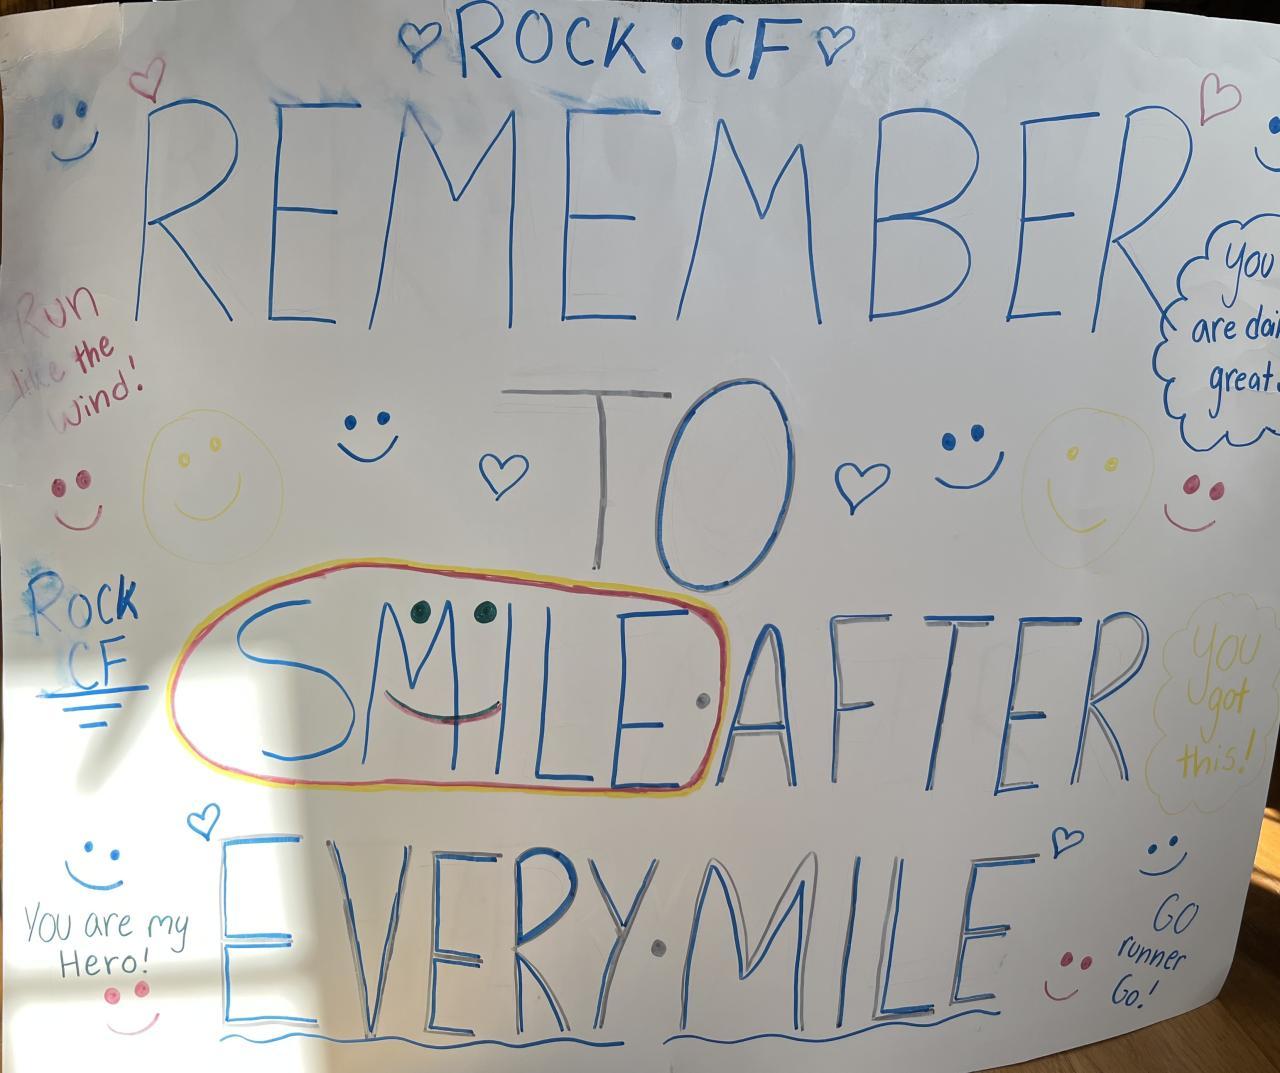 ROCK • CF
REMEMBER
TO
SMILE • AFTER
EVERY • MILE
Run
like the
Wind!
You
are doin
great.
ROCK
CF
You
got
this!
You are my
Hero!
GO
runner
Go!